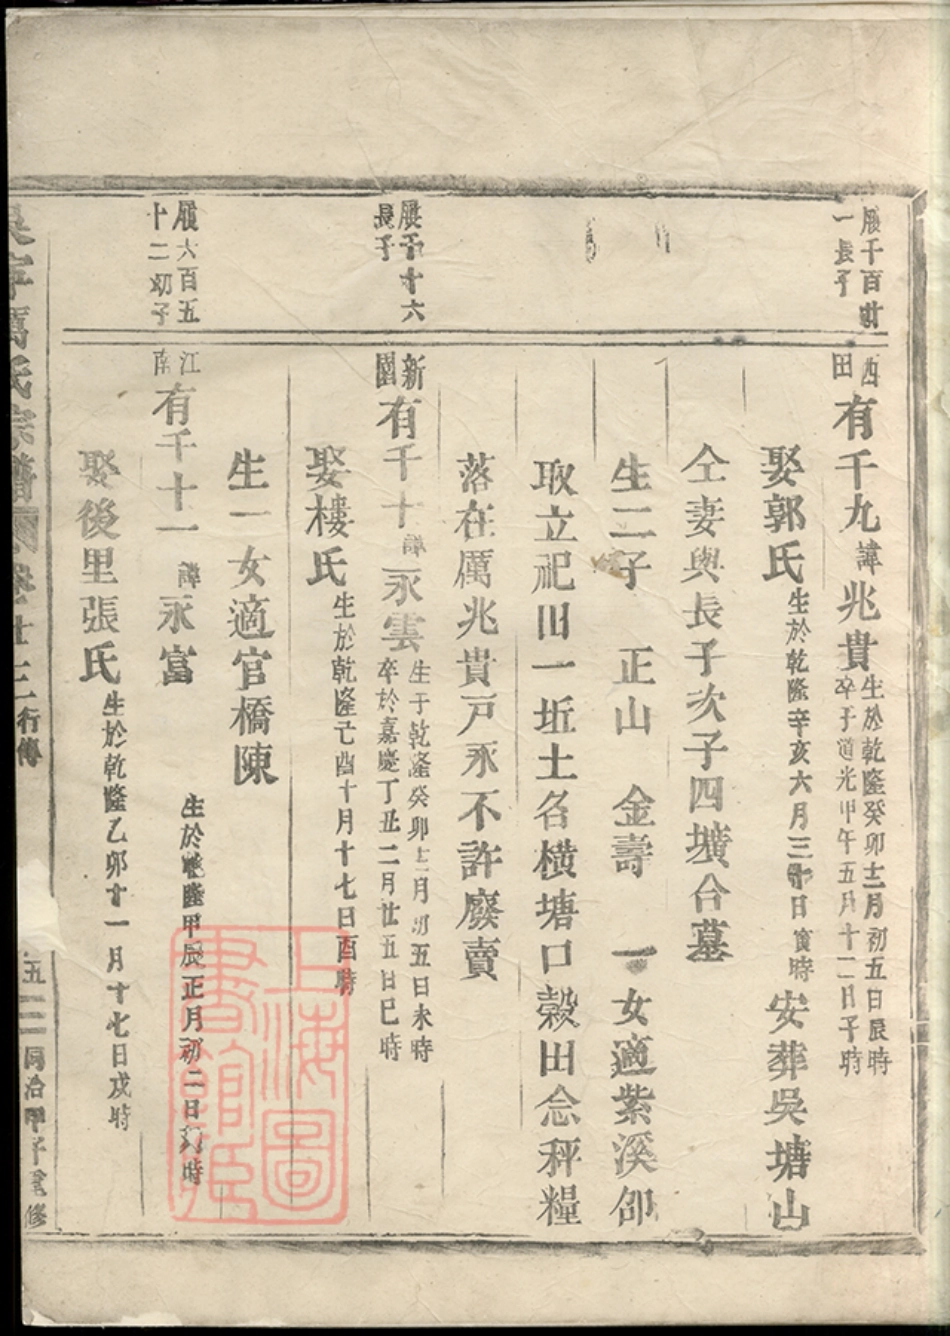 履千百廿
一長子
西田
有千九諱兆貴
生於乾隆癸卯十二月初五日辰時
卒于道光甲午五月十二日子時
娶郭氏
生於乾隆辛亥六月三十日寅時
安葬吳塘山
仝妻與長子次子四壙合墓
生二子 正山 金壽 一女適紫溪邵
取立祀田一坵土名橫塘口穀田念秤糧
落在厲兆貴戸永不許廢賣
履千十六
長子
新園
有千十諱永雲
生于乾隆癸卯十二月初五日未時
卒於嘉慶丁丑二月廿五日巳時
娶樓氏
生於乾隆己酉十月十七日酉時
生一女適官橋陳
履六百五
十二幼子
江南
有千十一諱永富
生於乾隆甲辰正月初二日卯時
娶後里張氏
生於乾隆乙卯十一月十七日戌時
厲氏宗譜
行傳
五
同治甲子重修
上海圖書館藏